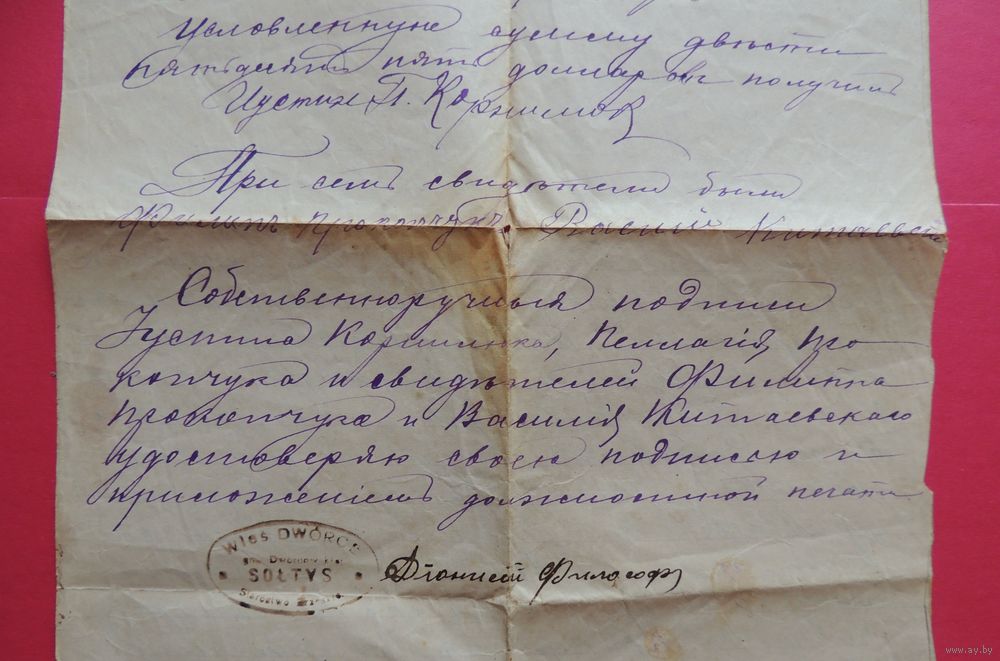 условленную сумму двѣсти
пятьдесятъ пять долларовъ получилъ
Іустинъ П. Корнилюкъ
При семъ свидѣтели были
Филипъ Прокопчукъ, Василій Китаевскій
Собственноручныя подписи
Іустина Корнилюка, Пеллагія Про
копчука и свидѣтелей Филиппа
Прокопчука и Василія Китаевскаго
удостовѣряю своею подписью и
приложеніемъ должностной печати
WIEŚ DWÓRCE
SOŁTYS
Діонисій Философъ
www.ay.by